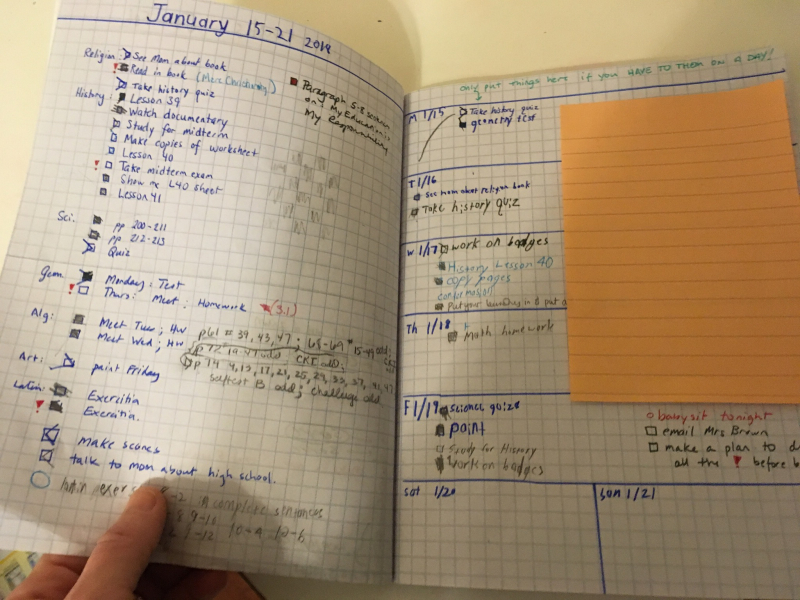 January 15-21 2018
Religion: See Mom about book
! Read in book (Mere Christianity)
Take history quiz
History: Lesson 39
Watch documentary
Study for midterm
Make copies of worksheet
Lesson 40
! Take midterm exam
Show me L40 sheet
Lesson 41
Paragraph 5-8 sentences
on My Education is
My Responsibility
Sci.
pp 200-211
pp 212-213
Quiz
Geom. Monday: Test
! Thurs: Meet; Homework (3.1)
Alg: Meet Tue; HW
Meet Wed; HW
p61 # 39, 43, 47; 65-69
15-49 odd;
p 72 19-47 odd CKT odd;
p 74 9, 13, 17, 21, 25, 29, 33, 37, 41, 47
B odd; challenge odd
Art: paint Friday
Latin: Exercitia
! Exercitia.
make scones
talk to mom about high school.
in complete sentences
9-11
only put things here if you HAVE TO THEM ON A DAY!
M 1/15 Take history quiz
geometry test
T 1/16
see mom about religion book
Take history quiz
W 1/17 work on badges
History Lesson 40
copy pages
Put your laundry in & put a
Th 1/18
Math homework
F 1/19 science quizs
paint
Study for History
work on badges
babysit tonight
email Mrs Brown
make a plan to d
all the ! before b
Sat 1/20
Sun 1/21